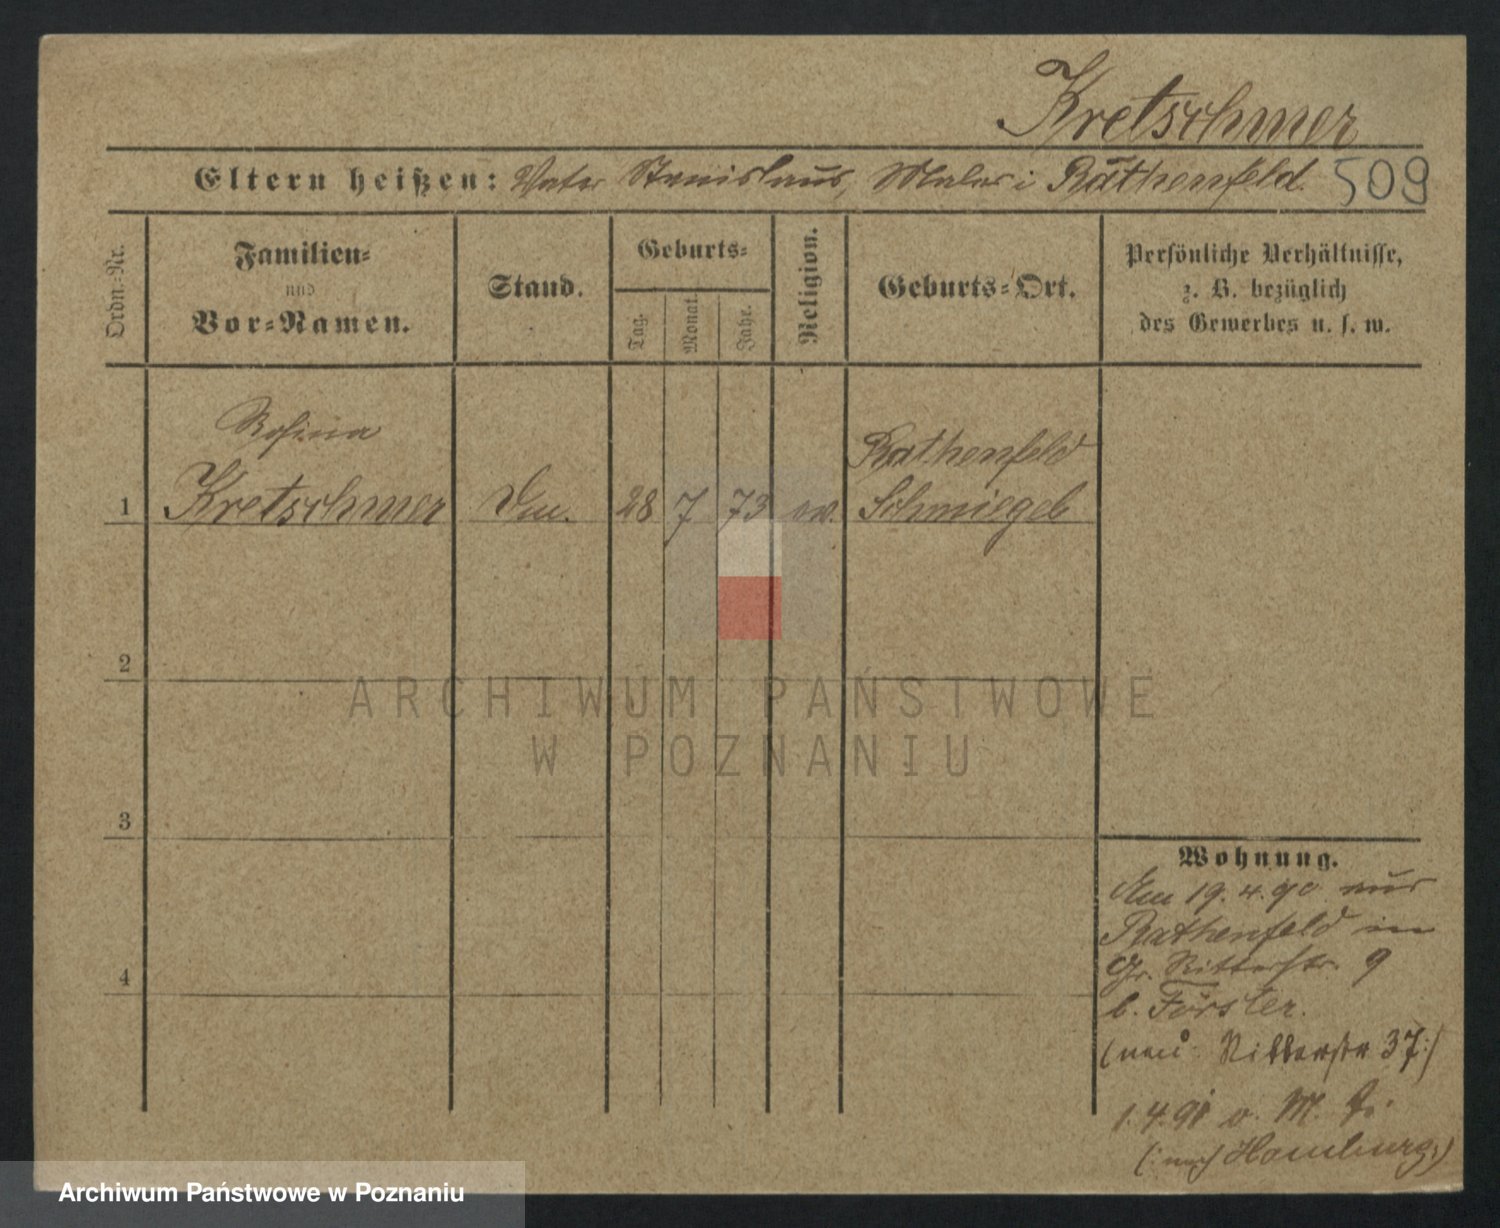 Kretschmer
Eltern heißen: Vater Stanislaus, Maler i Räthenfeld. 509
Ordn.-Nr.
Familien-
und
Vor-Namen.
Stand.
Geburts-
Tag.
Monat.
Jahr.
Religion.
Geburts-Ort.
Persönliche Verhältnisse,
z. B. bezüglich
des Gewerbes u. s. w.
Rosina
Rathenfeld
1 Kretschmer 28 7 73 ev. Schmiegel
2
ARCHIWUM PAŃSTWOWE
W POZNANIU
3
4
Wohnung.
Am 19.4.90 aus
Rathenfeld in
Gr. Ritterstr. 9
b. Förster.
(neu: Ritterstr 37:)
1.4.91 v. M.
(: nach Hamburg:)
Archiwum Państwowe w Poznaniu